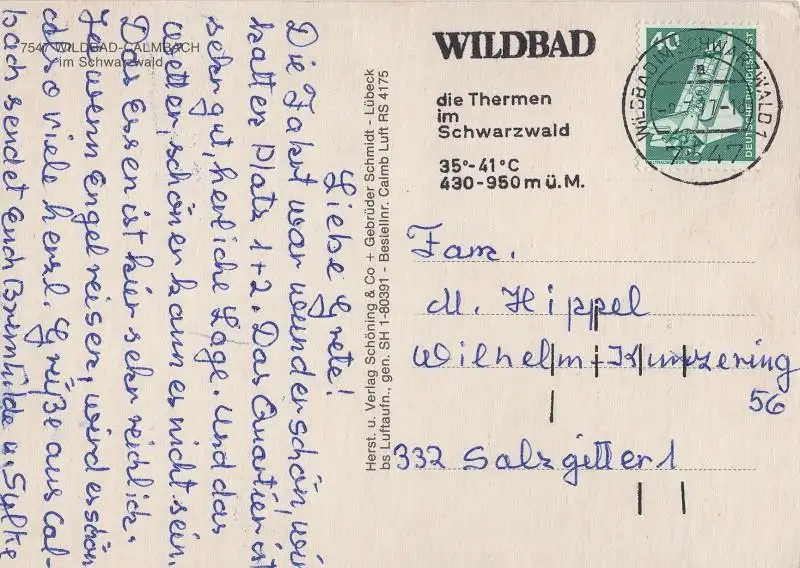 7547 WILDBAD-CALMBACH
im Schwarzwald
Liebe Grete!
Die Fahrt war wunderschön, wir
hatten Platz 1+2. Das Quartier ist
sehr gut, herliche Lage. Und das
Wetter, schöner kann es nicht sein.
Das Essen ist hier sehr reichlich.
Ja wenn Engel reisen, wird es schön
also viele herzl. Grüße aus Cal-
bach sendet Euch Brunhilde u. Sylke
Herst. u. Verlag Schöning & Co + Gebrüder Schmidt - Lübeck
bs Luftaufn., gen. SH 1-80391 - Bestellnr. Calmb Luft RS 4175
WILDBAD
die Thermen
im
Schwarzwald
35°-41°C
430-950m ü.M.
DEUTSCHE BUNDESPOST
WILDBAD IM SCHWARZWALD 1
7547
Fam.
M. Hippel
Wilhelm-Kunzering
56
332 Salzgitter 1